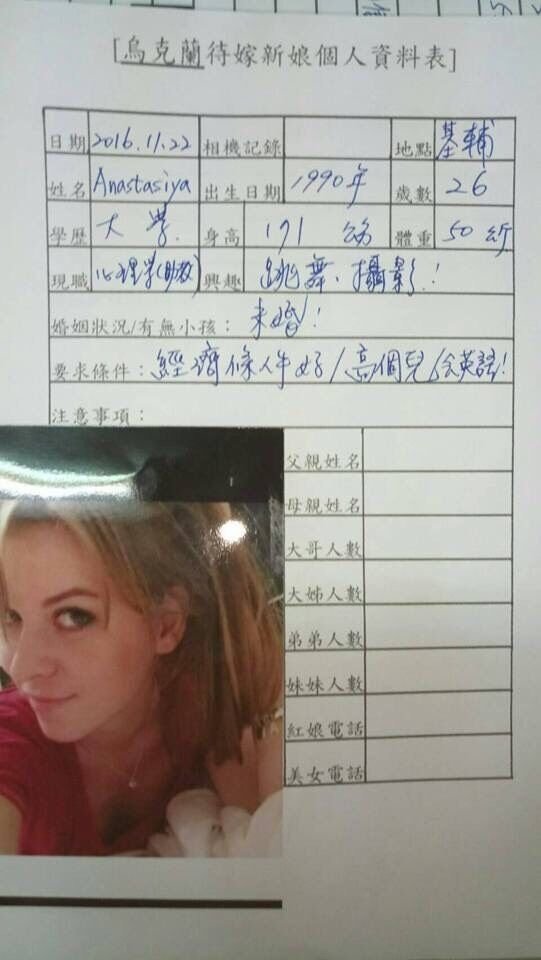 [烏克蘭待嫁新娘個人資料表]
日期 2016.11.22 相機記錄 地點 基輔
姓名 Anastasiya 出生日期 1990年 歲數 26
學歷 大學. 身高 171 公分 體重 50公斤
現職 心理學(助教) 興趣 跳舞、攝影!
婚姻狀況/有無小孩: 未婚!
要求條件: 經濟條件好/高個兒/会英語!
注意事項:
父親姓名
母親姓名
大哥人數
大姊人數
弟弟人數
妹妹人數
紅娘電話
美女電話